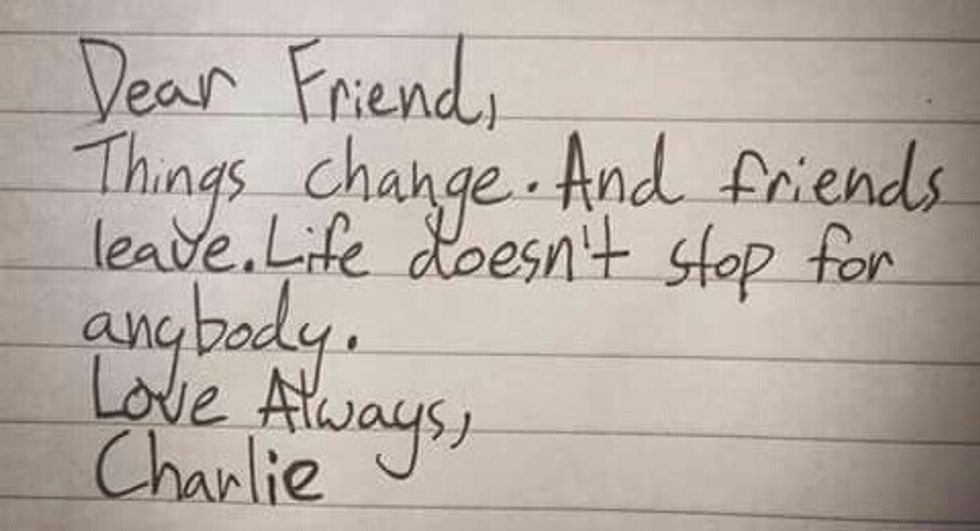 Dear Friend,
Things change. And friends
leave. Life doesn't stop for
anybody.
Love Always,
Charlie